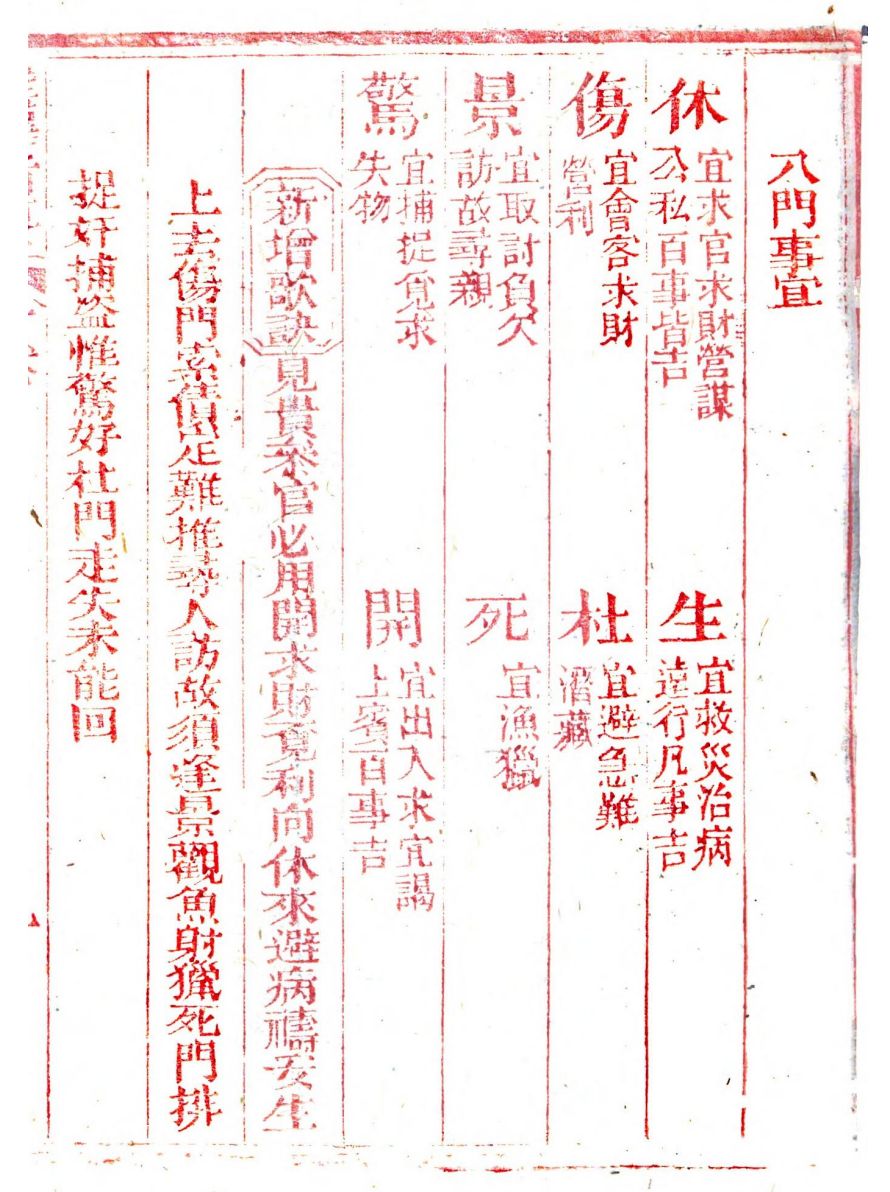 八門事宜
休 宜求官求財營謀公私百事皆吉
生 宜救災治病遠行凡事吉
傷 宜會客求財營利
杜 宜避急難潛藏
景 宜取討負欠訪故尋親
死 宜漁獵
驚 宜捕捉覓求失物
開 宜出入求官謁上賓百事吉
新增歌訣 見貴求官必用開求財覓利向休來避病禱安生
上去傷門索債定難推尋人訪故須逢景觀魚射獵死門排
捉奸捕盜惟驚好杜門走失未能回